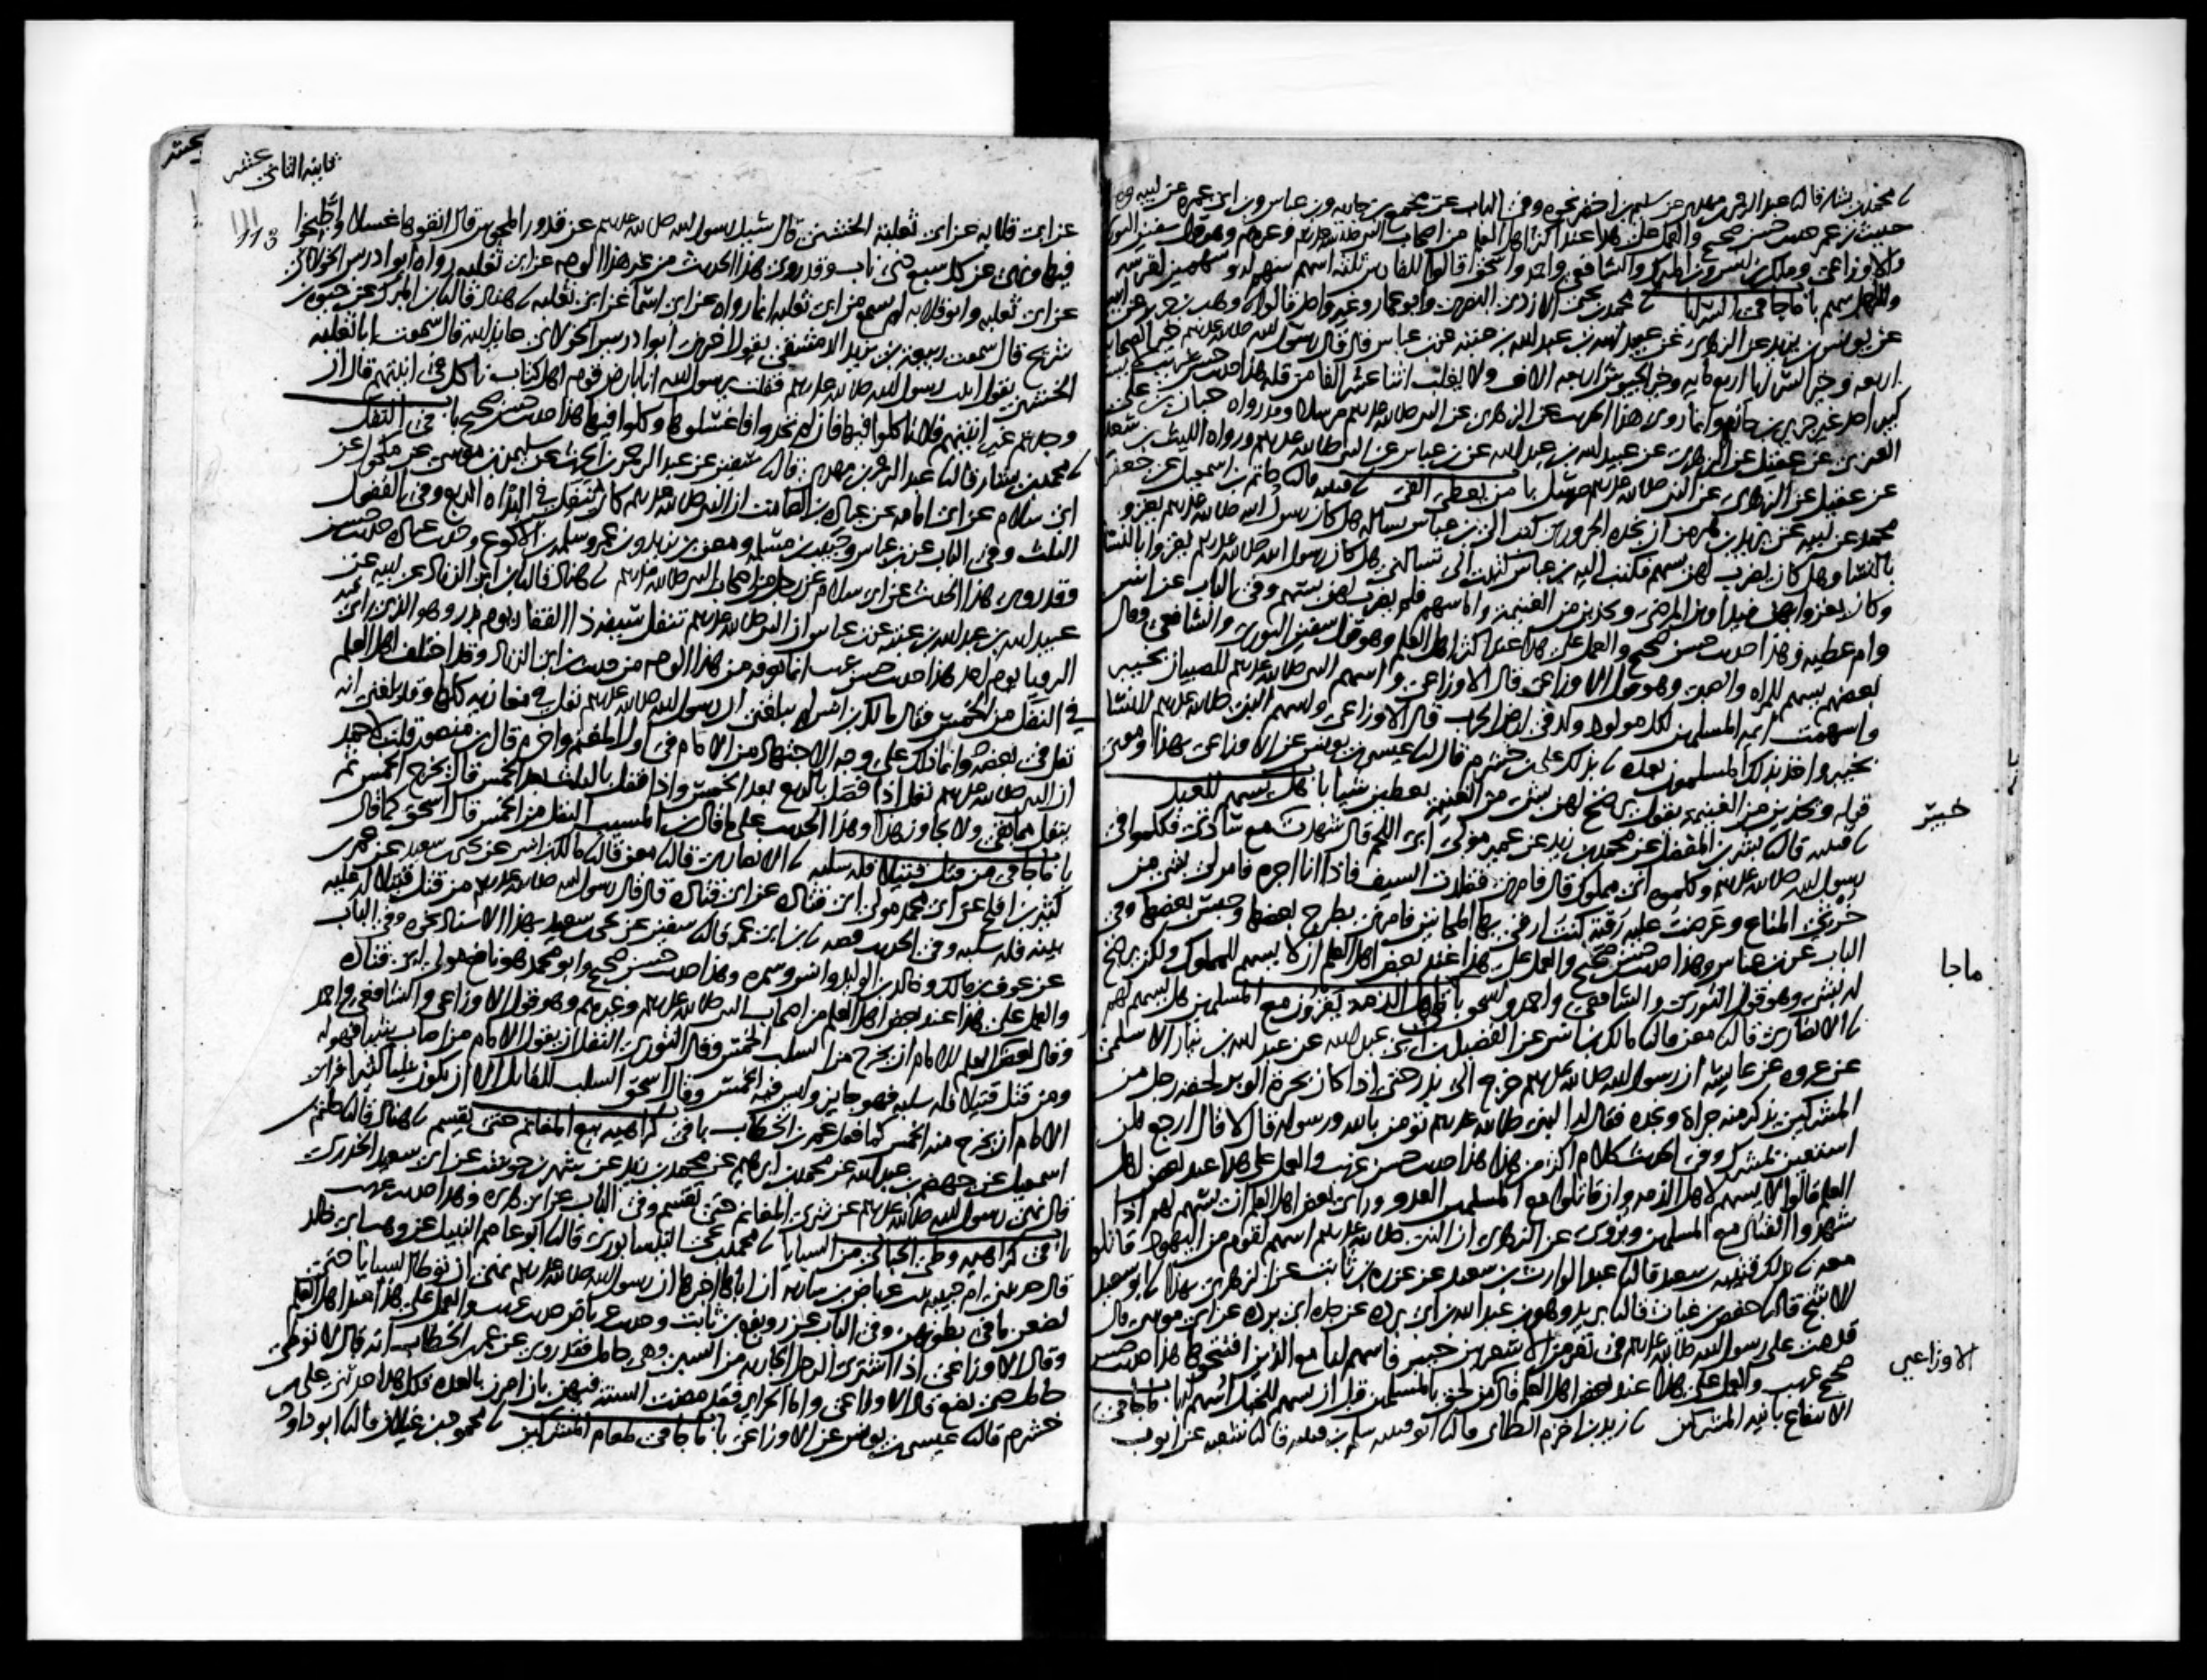 محمد بن بشار قال نا عبد الرحمن بن مهدي عن سليم بن اخضر نحوه وفي الباب عن مجمع بن جارية وبن عباس وبن ابي عمره عن ابيه وهذا
حديث بن عمر حديث حسن صحيح والعمل على هذا عند اكثر اهل العلم من اصحاب النبي صلى الله عليه وسلم وغيرهم وهو قول سفين الثوري
والاوزاعي ومالك بن انس وبن المبرك والشافعي واحمد واسحق قالوا للفارس ثلثه اسهم سهم له وسهمين لفرسه
وللراجل سهم باب ما جا في السرايا نا محمد بن يحيى الازدي البصري وابو عمار وغير واحد قالوا نا وهب بن جرير عن ابيه
عن يونس بن يزيد عن الزهري عن عبيد الله بن عبد الله بن عتبه عن بن عباس قال قال رسول الله صلى الله عليه وسلم خير الصحابه
اربعه وخير السرايا اربع مايه وخير الجيوش اربعه الاف ولا يغلب اثنا عشر الفا من قله هذا حديث حسن غريب لا يسنده
كبير احد غير جرير بن حازم وانما روي هذا الحديث عن الزهري عن النبي صلى الله عليه وسلم مرسلا وقد رواه حبان بن علي
العنزي عن عقيل عن الزهري عن عبيد الله بن عبد الله عن بن عباس عن النبي صلى الله عليه وسلم ورواه الليث بن سعد
عن عقيل عن الزهري عن النبي صلى الله عليه وسلم مرسل باب من يعطى الفي نا قتيبه قال نا حاتم بن اسمعيل عن جعفر بن
محمد عن ابيه عن يزيد بن هرمز ان نجده الحروري كتب الى بن عباس يساله هل كان رسول الله صلى الله عليه وسلم يغزو
بالنسا وهل كان يضرب لهن بسهم فكتب اليه بن عباس كتبت الي تسالني هل كان رسول الله صلى الله عليه وسلم يغزوا بالنسا
وكان يغزوا بهن فيداوين المرضى ويحذين من الغنيمه واما سهم فلم يضرب لهن بسهم وفي الباب عن انس
وام عطيه وهذا حديث حسن صحيح والعمل على هذا عند اكثر اهل العلم وهو قول سفين الثوري والشافعي وقال
بعضهم يسهم للمراه والصبي وهو قول الاوزاعي قال الاوزاعي واسهم النبي صلى الله عليه وسلم للصبيان بخيبر
واسهمت ايمه المسلمين لكل مولود ولد في ارض الحرب قال الاوزاعي واسهم النبي صلى الله عليه وسلم للنسا
بخيبر واخذ بذلك المسلمون بعده نا بذلك علي بن خشرم قال نا عيسى بن يونس عن الاوزاعي بهذا ومعنى
قوله ويحذين من الغنيمه يقول يرضخ لهن بشي من الغنيمه يعطين شيا باب هل يسهم للعبد
نا قتيبه قال نا بشر بن المفضل عن محمد بن زيد عن عمير مولى ابي اللحم قال شهدت خيبر مع سادتي فكلموا في
رسول الله صلى الله عليه وسلم وكلموه اني مملوك قال فامر بي فقلدت السيف فاذا انا اجره فامر لي بشي من
خرثي المتاع وعرضت عليه رقيه كنت ارقي بها المجانين فامرني بطرح بعضها وحبس بعضها وفي
الباب عن بن عباس وهذا حديث حسن صحيح والعمل على هذا عند بعض اهل العلم ان لا يسهم للمملوك ولكن يرضخ
له بشي وهو قول الثوري والشافعي واحمد واسحق باب ما جا في اهل الذمه يغزون مع المسلمين هل يسهم لهم
نا الانصاري قال نا معن قال نا مالك بن انس عن الفضيل بن ابي عبد الله عن عبد الله بن نيار الاسلمي
عن عروه عن عايشه ان رسول الله صلى الله عليه وسلم خرج الى بدر حتى اذا كان بحرة الوبر لحقه رجل من
المشركين يذكر منه جراة ونجده فقال له النبي صلى الله عليه وسلم تومن بالله ورسوله قال لا قال ارجع فلن
استعين بمشرك وفي الحديث كلام اكثر من هذا هذا حديث حسن غريب والعمل على هذا عند بعض اهل
العلم قالوا لا يسهم لاهل الذمه وان قاتلوا مع المسلمين العدو وراى بعض اهل العلم ان يسهم لهم اذا
شهدوا القتال مع المسلمين ويروى عن الزهري ان النبي صلى الله عليه وسلم اسهم لقوم من اليهود قاتلوا
معه نا بذلك قتيبه بن سعيد قال نا عبد الوارث بن سعيد عن عزره بن ثابت عن الزهري بهذا نا ابو سعيد
الاشج قال نا حفص بن غياث قال نا بريد وهو بن عبد الله بن ابي برده عن جده ابي برده عن ابي موسى قال
قدمت على رسول الله صلى الله عليه وسلم في نفر من الاشعريين خيبر فاسهم لنا مع الذين افتتحوها هذا حديث حسن
صحيح غريب والعمل على هذا عند بعض اهل العلم قال من لحق بالمسلمين قبل ان يسهم للخيل اسهم له باب ما جا في
الانتفاع بانيه المشركين نا زيد بن اخزم الطائي قال نا ابو قتيبه سلم بن قتيبه قال نا شعبه عن ايوب
خيبر
ما جا
الاوزاعي
ثانيه الثاني عشر
113
عن ابي قلابه عن ابي ثعلبه الخشني قال سئل رسول الله صلى الله عليه وسلم عن قدور المجوس قال انقوها غسلا واطبخوا
فيها ونهى عن كل سبع ذي ناب وقد روي هذا الحديث من غير هذا الوجه عن ابي ثعلبه رواه ابو ادريس الخولاني
عن ابي ثعلبه وابو قلابه لم يسمع من ابي ثعلبه انما رواه عن ابي اسما عن ابي ثعلبه نا هناد قال نا بن المبرك عن حيوه بن
شريح قال سمعت ربيعه بن يزيد الدمشقي يقول اخبرني ابو ادريس الخولاني عايذ الله قال سمعت ابا ثعلبه
الخشني يقول اتيت رسول الله صلى الله عليه وسلم فقلت يرسول الله انا بارض قوم اهل كتاب ناكل في انيتهم قال ان
وجدتم غير انيتهم فلا تاكلوا فيها فان لم تجدوا فاغسلوها وكلوا فيها هذا حديث حسن صحيح باب في النفل
نا محمد بن بشار قال نا عبد الرحمن بن مهدي قال نا سفين عن عبد الرحمن بن الحرث عن سليمن بن موسى عن مكحول عن
ابي سلام عن ابي امامه عن عباده بن الصامت ان النبي صلى الله عليه وسلم كان ينفل في البداه الربع وفي القفول
الثلث وفي الباب عن بن عباس وحبيب بن مسلمه ومعن بن يزيد وبن عمر وسلمه بن الاكوع وحديث عباده حديث حسن
وقد روي هذا الحديث عن ابي سلام عن رجل من اصحاب النبي صلى الله عليه وسلم نا هناد قال نا بن ابي الزناد عن ابيه عن
عبيد الله بن عبد الله بن عتبه عن بن عباس ان النبي صلى الله عليه وسلم تنفل سيفه ذا الفقار يوم بدر وهو الذي راى فيه
الرويا يوم احد هذا حديث حسن غريب انما نعرفه من هذا الوجه من حديث بن ابي الزناد وقد اختلف اهل العلم
في النفل من الخمس فقال مالك بن انس لم يبلغني ان رسول الله صلى الله عليه وسلم نفل في مغازيه كلها وقد بلغني انه
نفل في بعضها وانما ذلك على وجه الاجتهاد من الامام في اول المغنم واخره قال بن منصور قلت لاحمد
ان النبي صلى الله عليه وسلم نفل اذا فصل بالربع بعد الخمس واذا قفل بالثلث بعد الخمس قال يخرج الخمس ثم
ينفل مما بقي ولا يجاوز هذا وهذا الحديث على ما قال بن المسيب النفل من الخمس قال اسحق كما قال
باب ما جا في من قتل قتيلا فله سلبه نا الانصاري قال نا معن قال نا مالك بن انس عن يحيى بن سعيد عن عمر بن
كثير بن افلح عن ابي محمد مولى ابي قتاده عن ابي قتاده قال قال رسول الله صلى الله عليه وسلم من قتل قتيلا له عليه
بينه فله سلبه وفي الحديث قصه نا بن ابي عمر قال نا سفين عن يحيى بن سعيد بهذا الاسناد نحوه وفي الباب
عن عوف بن مالك وخالد بن الوليد وانس وسمره وهذا حديث حسن صحيح وابو محمد هو نافع مولى ابي قتاده
والعمل على هذا عند بعض اهل العلم من اصحاب النبي صلى الله عليه وسلم وغيرهم وهو قول الاوزاعي والشافعي واحمد
وقال بعض اهل العلم للامام ان يخرج من السلب الخمس وقال الثوري النفل ان يقول الامام من اصاب شيا فهو له
ومن قتل قتيلا فله سلبه فهو جايز وليس فيه الخمس وقال اسحق السلب للقاتل الا ان يكون شيا كثيرا فراى
الامام ان يخرج منه الخمس كما فعل عمر بن الخطاب باب في كراهيه بيع المغانم حتى تقسم نا هناد قال نا حاتم بن
اسمعيل عن جهضم بن عبد الله عن محمد بن ابرهيم عن محمد بن زيد عن شهر بن حوشب عن ابي سعيد الخدري
قال نهى رسول الله صلى الله عليه وسلم عن شرى المغانم حتى تقسم وفي الباب عن ابي هريره وهذا حديث غريب
باب في كراهيه وطي الحبالى من السبايا نا محمد بن يحيى النيسابوري قال نا ابو عاصم النبيل عن وهب ابي خالد
قال حدثتني ام حبيبه بنت عرباض بن ساريه ان اباها اخبرها ان رسول الله صلى الله عليه وسلم نهى ان توطا السبايا حتى
تضعن ما في بطونهن وفي الباب عن رويفع بن ثابت وحديث عرباض حديث غريب والعمل على هذا عند اهل العلم
وقال الاوزاعي اذا اشترى الرجل الجاريه من السبي وهي حامل فقد روي عن عمر بن الخطاب انه قال لا توطى
حامل حتى تضع قال الاوزاعي واما الحراير فقد مضت السنه فيهن بان امرن بالعده كل هذا حدثني علي بن
خشرم قال نا عيسى بن يونس عن الاوزاعي باب ما جا في طعام المشركين نا محمود بن غيلان قال نا ابو داود